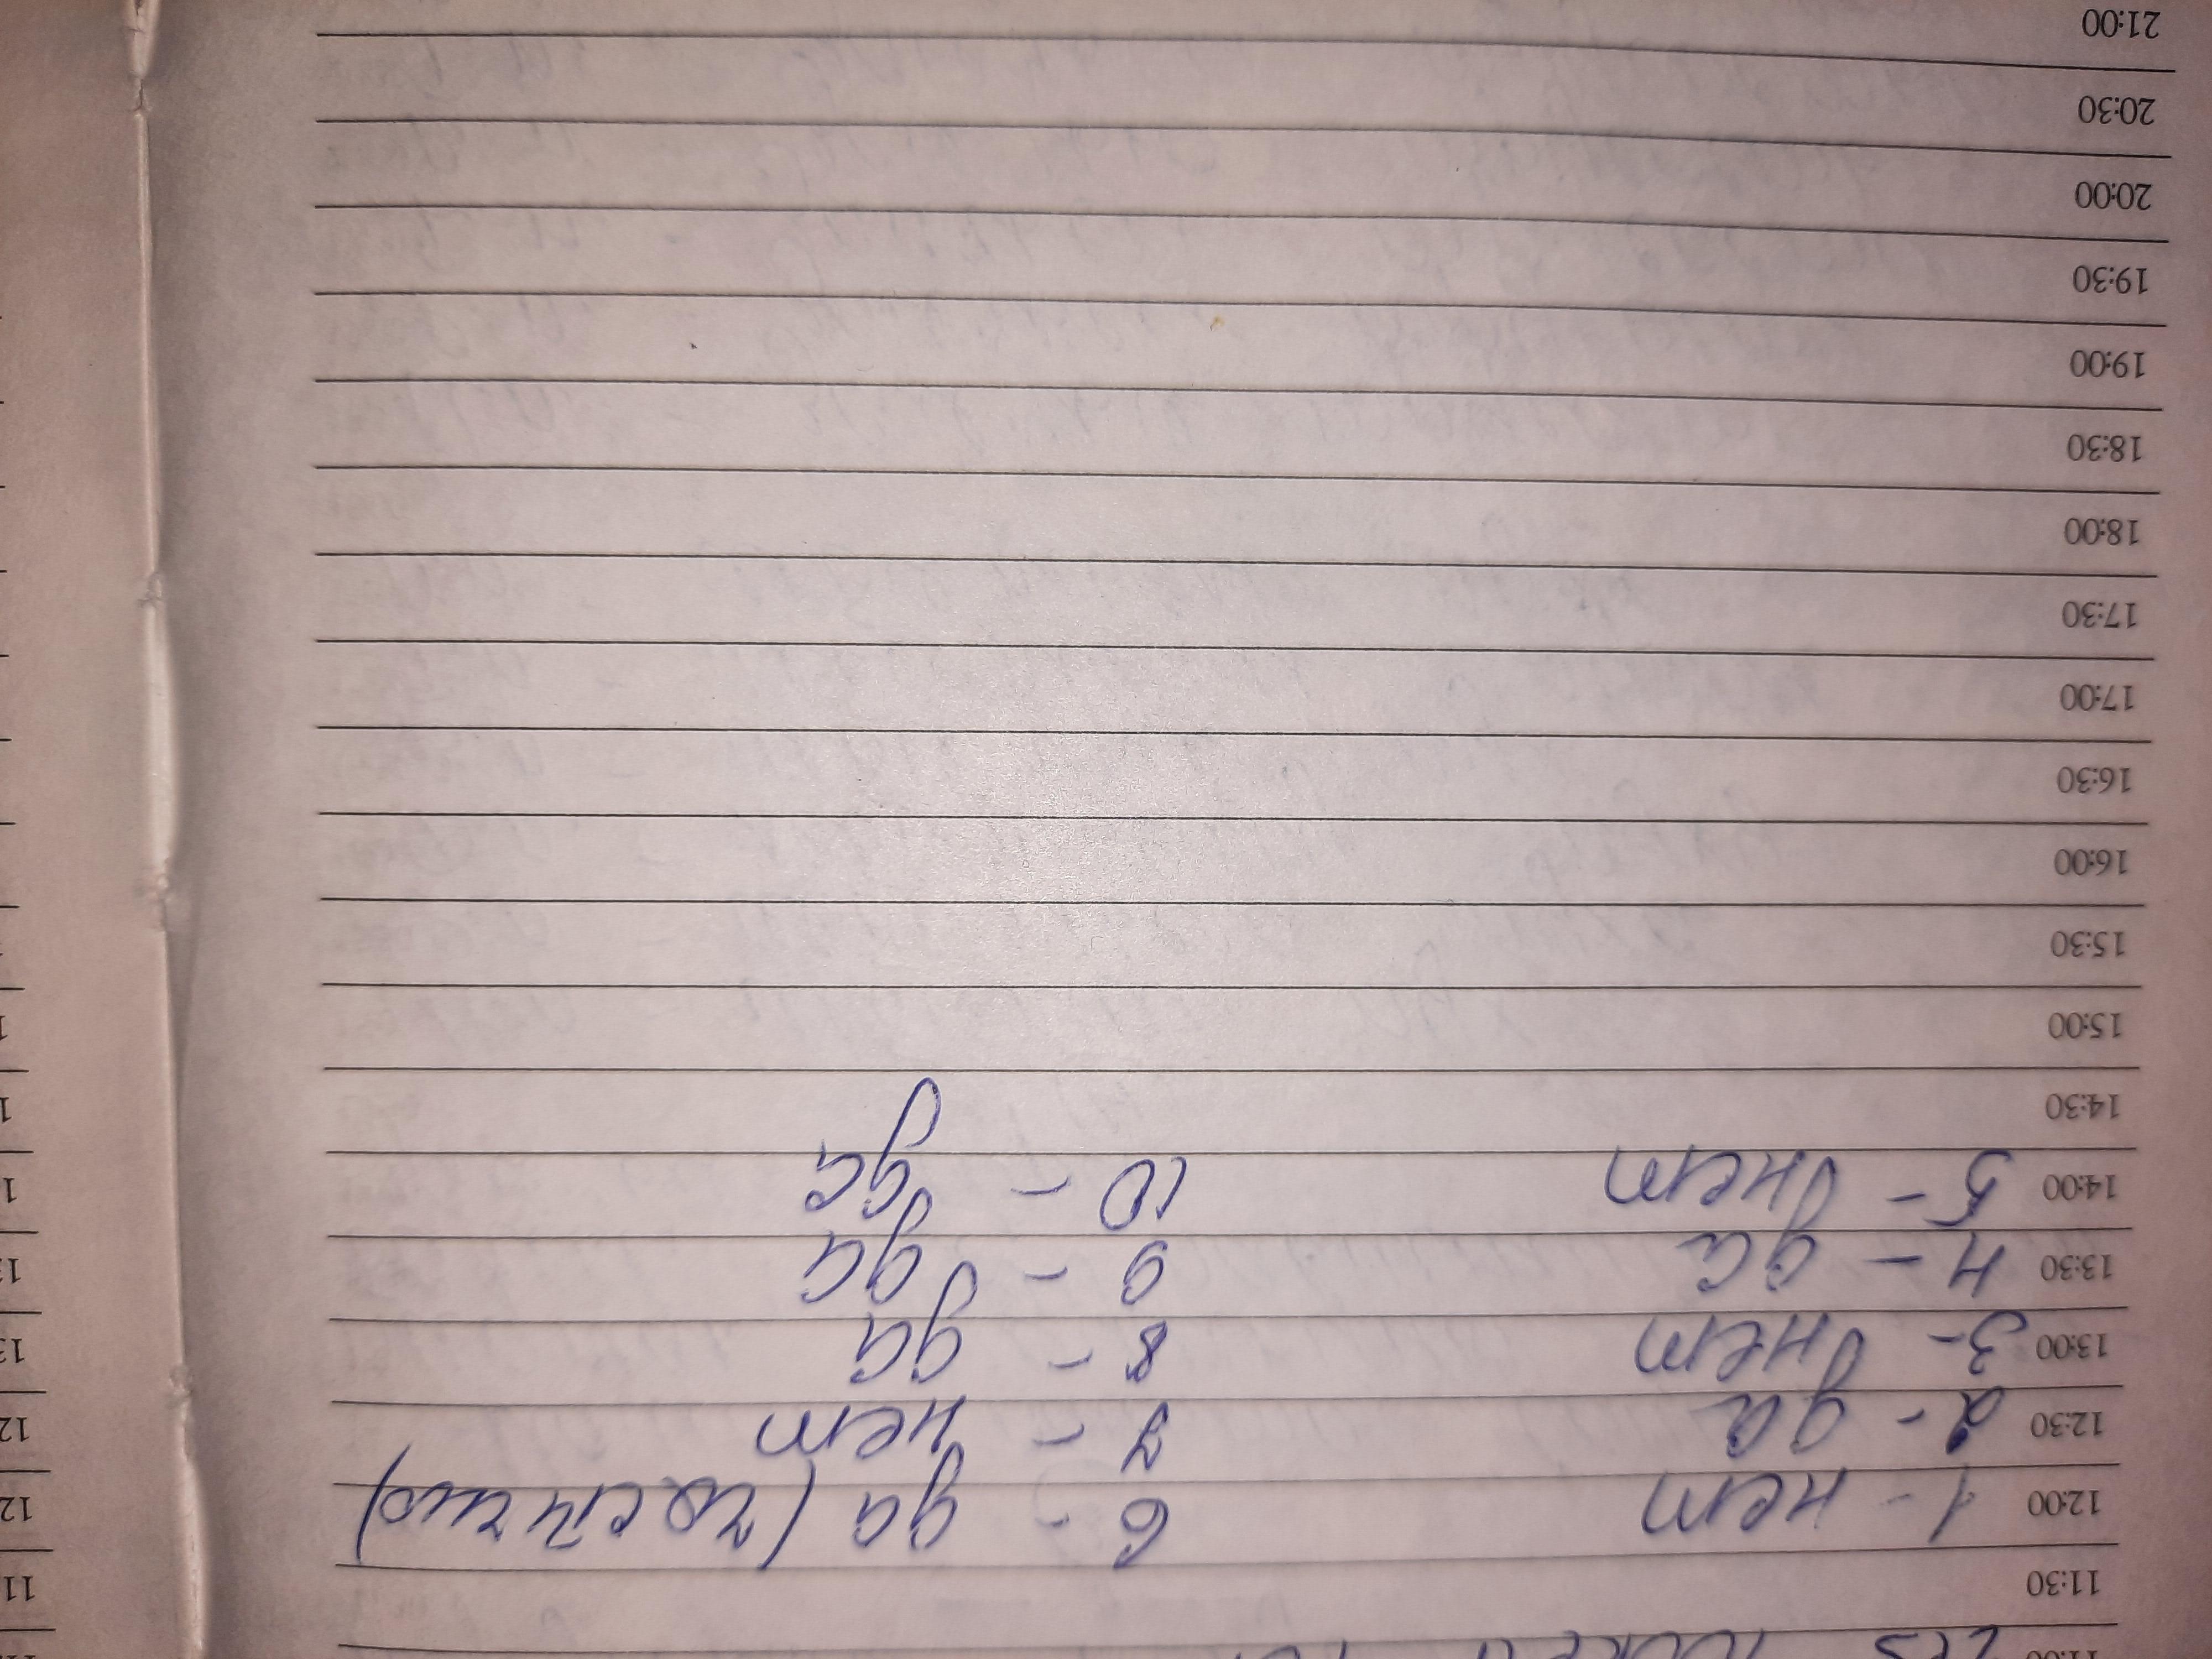 11:30
12:00 1 - нет 6 - да (частично)
12:30 2 - да 7 - нет
13:00 3 - нет 8 - да
13:30 4 - да 9 - да
14:00 5 - нет 10 - да
14:30
15:00
15:30
16:00
16:30
17:00
17:30
18:00
18:30
19:00
19:30
20:00
20:30
21:00